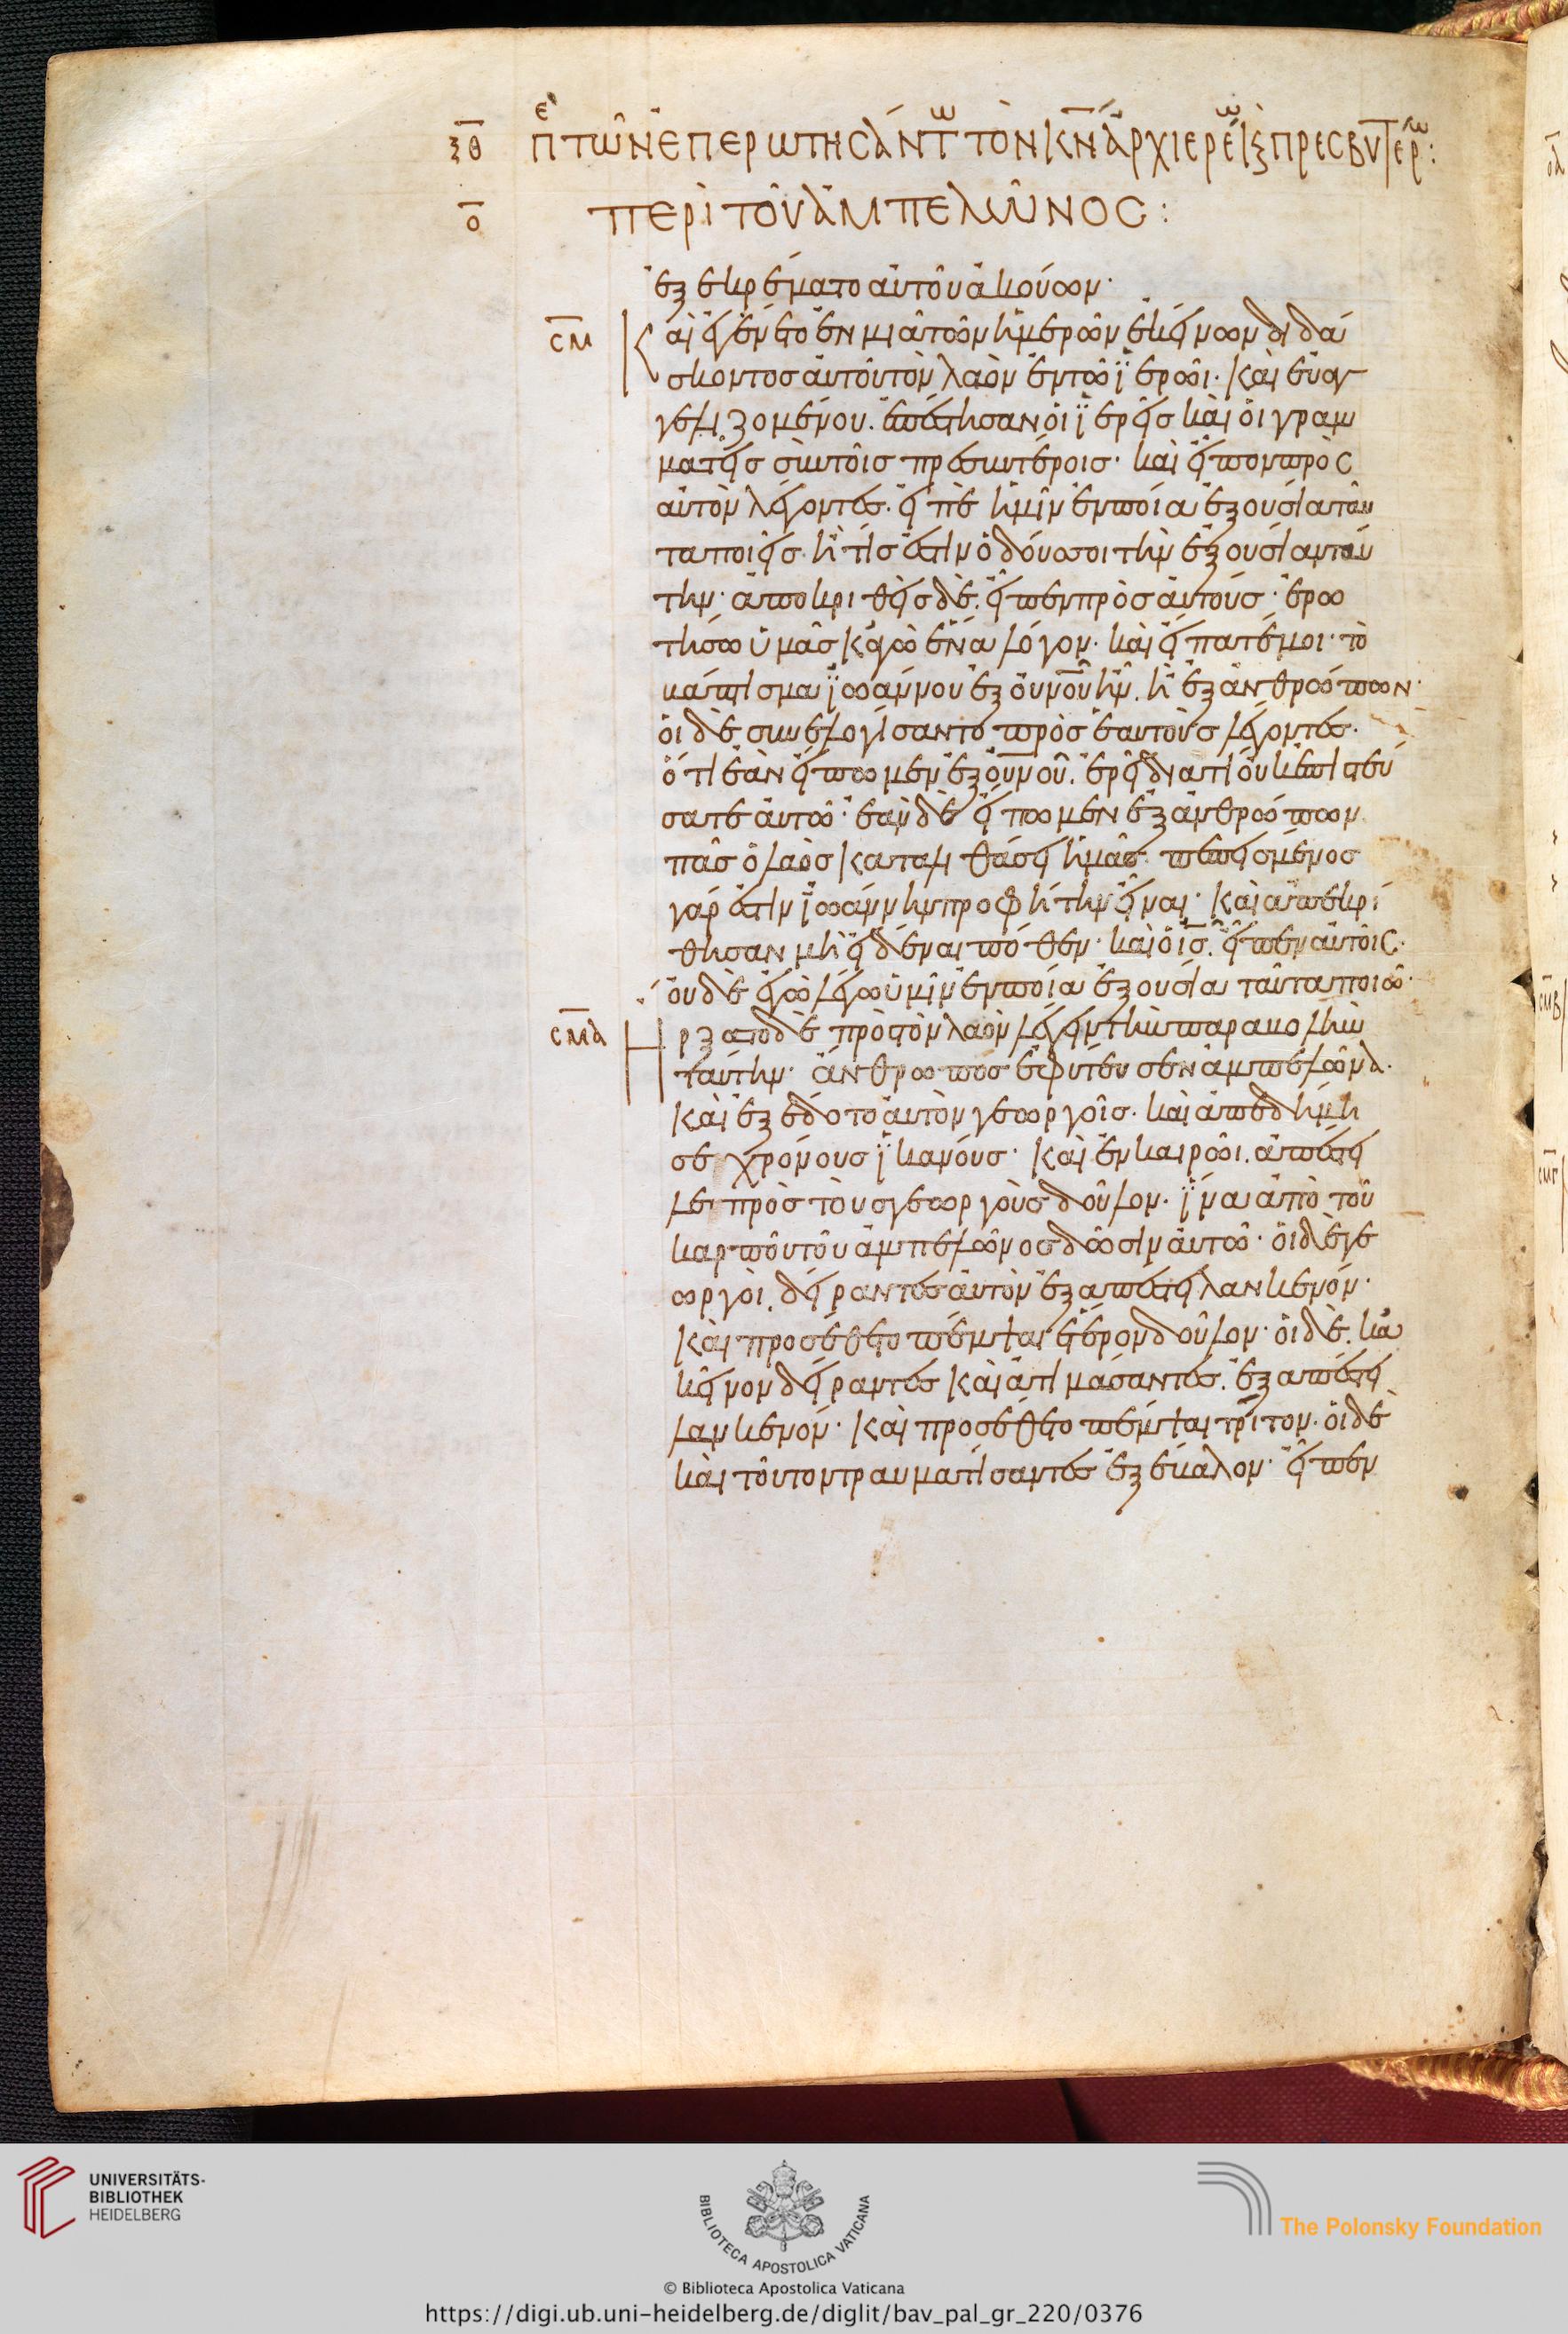 ξθ πε τῶν ἐπερωτησάντω τὸν κν ἀρχιερέω κ πρεσβυτέρω:
ο περὶ τοῦ ἀμπελῶνος:
ἐξεκρέματο αὐτοῦ ἀκούων·
σμ Καὶ ἐγένετο ἐν μιᾷ τῶν ἡμερῶν ἐκείνων διδά
σκοντος αὐτοῦ τὸν λαὸν ἐν τῶ ϊερῶι· καὶ εὐαγ
γελιζομένου. ἐπέστησαν οἱ ϊερεῖς καὶ οἱ γραμ
ματεῖς σὺν τοῖς πρεσβυτέροις· καὶ εἶπον πρὸς
αὐτὸν λέγοντες. εἰπὲ ἡμῖν ἐν ποία ἐξουσία ταῦ
τα ποιεῖς. ἢ τίς ἐστιν ὁ δούς σοι τὴν ἐξουσίαν ταύ
την· ἀποκριθεὶς δὲ. εἶπεν πρὸς αὐτούς· ἐρω
τήσω ὑμᾶς κἀγὼ ἕνα λόγον· καὶ εἴπατέ μοι· τὸ
βάπτισμα ϊωάννου ἐξ ουνου ἦν. ἢ ἐξ ἀνθρώπων·
οἱ δὲ συνελογίσαντο πρὸς ἑαυτοὺς λέγοντες.
ὅτι ἐὰν εἴπωμεν ἐξ ουνου. ἐρεῖ διατί οὐκ ἐπιστεύ
σατε αὐτῶ· ἐὰν δὲ εἴπωμεν ἐξ ἀνθρώπων
πᾶς ὁ λαὸς καταλιθάσει ἡμᾶς· πεπεισμένος
γάρ ἐστιν ϊωάννην προφήτην εἶναι· καὶ ἀπεκρί
θησαν μὴ εἰδέναι πόθεν· καὶ ὁ ις. εἶπεν αὐτοῖς·
οὐδὲ ἐγὼ λέγω ὑμῖν ἐν ποία ἐξουσία ταῦτα ποιῶ·
σμα Ηρξατο δὲ πρὸς τὸν λαὸν λέγειν τὴν παραβολὴν
ταύτην· ἄνθρωπος ἐφύτευσεν ἀμπελῶνα·
καὶ ἐξέδοτο αὐτὸν γεωργοῖς· καὶ ἀπεδήμη
σε χρόνους ϊκανούς· καὶ ἐν καιρῶι. ἀπέστει
λει πρὸς τοὺς γεωργοὺς δοῦλον· ϊνα ἀπὸ τοῦ
καρποῦ τοῦ ἀμπελῶνος δῶσιν αὐτῶ· οἱ δὲ γε
ωργοὶ. δείραντες αὐτὸν ἐξαπέστειλαν κενόν·
καὶ προσέθετο πέμψαι ἕτερον δοῦλον· οἱ δὲ. κἀ
κεῖνον δείραντες καὶ ἀτιμάσαντες. ἐξαπέστει
λαν κενόν· καὶ προσέθετο πέμψαι τρίτον· οἱ δὲ
καὶ τοῦτον τραυματίσαντες ἐξέβαλον· εἶπεν
UNIVERSITÄTS-
BIBLIOTHEK
HEIDELBERG
BIBLIOTECA APOSTOLICA VATICANA
The Polonsky Foundation
© Biblioteca Apostolica Vaticana
https://digi.ub.uni-heidelberg.de/diglit/bav_pal_gr_220/0376